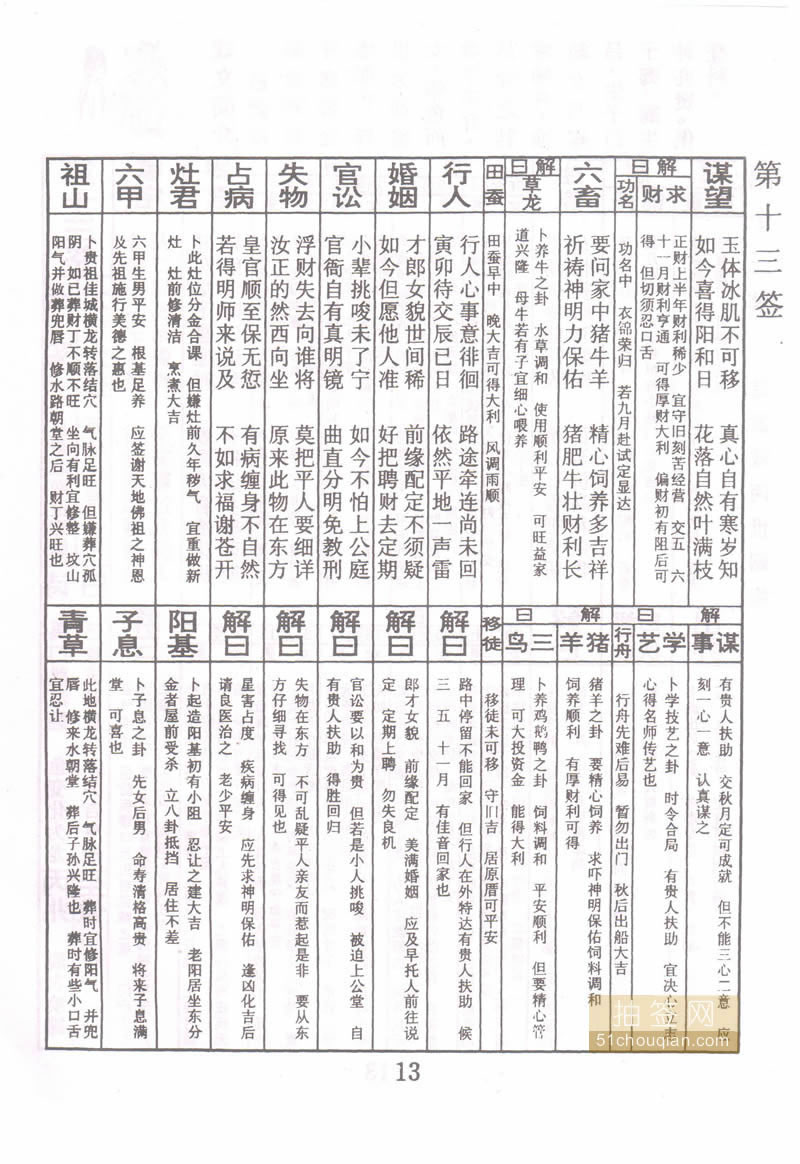 第十三签
谋望
玉体冰肌不可移 真心自有寒岁知
如今喜得阳和日 花落自然叶满枝
解曰
求财
正财上半年财利稀少 宜守旧刻苦经营 交五 六
十一月财利亨通 可得厚财大利 偏财初有阻后可
得 但切须忍口舌
功名
功名中 衣锦荣归 若九月赴试定显达
六畜
要问家中猪牛羊 精心饲养多吉祥
祈祷神明力保佑 猪肥牛壮财利长
解曰
草龙
卜养牛之卦 水草调和 使用顺利平安 可旺益家
道兴隆 母牛若有子宜细心喂养
田蚕
田蚕早中 晚大吉可得大利 风调雨顺
行人
行人心事意徘徊 路途牵连尚未回
寅卯待交辰巳日 依然平地一声雷
婚姻
才郎女貌世间稀 前缘配定不须疑
如今但愿他人准 好把聘财去定期
官讼
小辈挑唆未了宁 如今不怕上公庭
官衙自有真明镜 曲直分明免教刑
失物
浮财失去向谁将 莫把平人要细详
汝正的然西向坐 原来此物在东方
占病
皇官顺至保无愆 有病缠身不自然
若得明师来说及 不如求福谢苍开
灶君
卜此灶位分金合课 但嫌灶前久年秽气 宜重做新
灶 灶前修清洁 烹煮大吉
六甲
六甲生男平安 根基足养 应签谢天地佛祖之神恩
及先祖施行美德之惠也
祖山
卜贵祖佳城横龙转落结穴 气脉足旺 但嫌葬穴孤
阴 如已葬财丁不顺不旺 坐向有利宜修整 坟山
阳气并做葬兜唇 修水路朝堂之后 财丁兴旺也
解曰
谋事
有贵人扶助 交秋月定可成就 但不能三心二意 应
刻一心一意 认真谋之
学艺
卜学技艺之卦 时令合局 有贵人扶助 宜决心立志
心得名师传艺也
行舟
行舟先难后易 暂勿出门 秋后出船大吉
解曰
猪羊
猪羊之卦 要精心饲养 求吓神明保佑饲料调和
饲养顺利 有厚财利可得
三鸟
卜养鸡鹅鸭之卦 饲料调和 平安顺利 但要精心管
理 可大投资金 能得大利
移徒
移徒未可移 守旧吉 居原厝可平安
解曰
路中停留不能回家 但行人在外特达有贵人扶助 候
三 五 十一月 有佳音回家也
解曰
郎才女貌 前缘配定 美满婚姻 应及早托人前往说
定 定期上聘 勿失良机
解曰
官讼要以和为贵 但若是小人挑唆 被迫上公堂 自
有贵人扶助 得胜回归
解曰
失物在东方 不可乱疑平人亲友而惹起是非 要从东
方仔细寻找 可得见也
解曰
星害占度 疾病缠身 应先求神明保佑 逢凶化吉后
请良医治之 老少平安
阳基
卜起造阳基初有小阻 忍让之建大吉 老阳居坐东分
金者屋前受杀 立八卦抵挡 居住不差
子息
卜子息之卦 先女后男 命寿清格高贵 将来子息满
堂 可喜也
青草
此地横龙转落结穴 气脉足旺 葬时宜修阳气 并兜
唇 修来水朝堂 葬后子孙兴隆也 葬时有些小口舌
宜忍让
抽签网
51chouqian.com
13